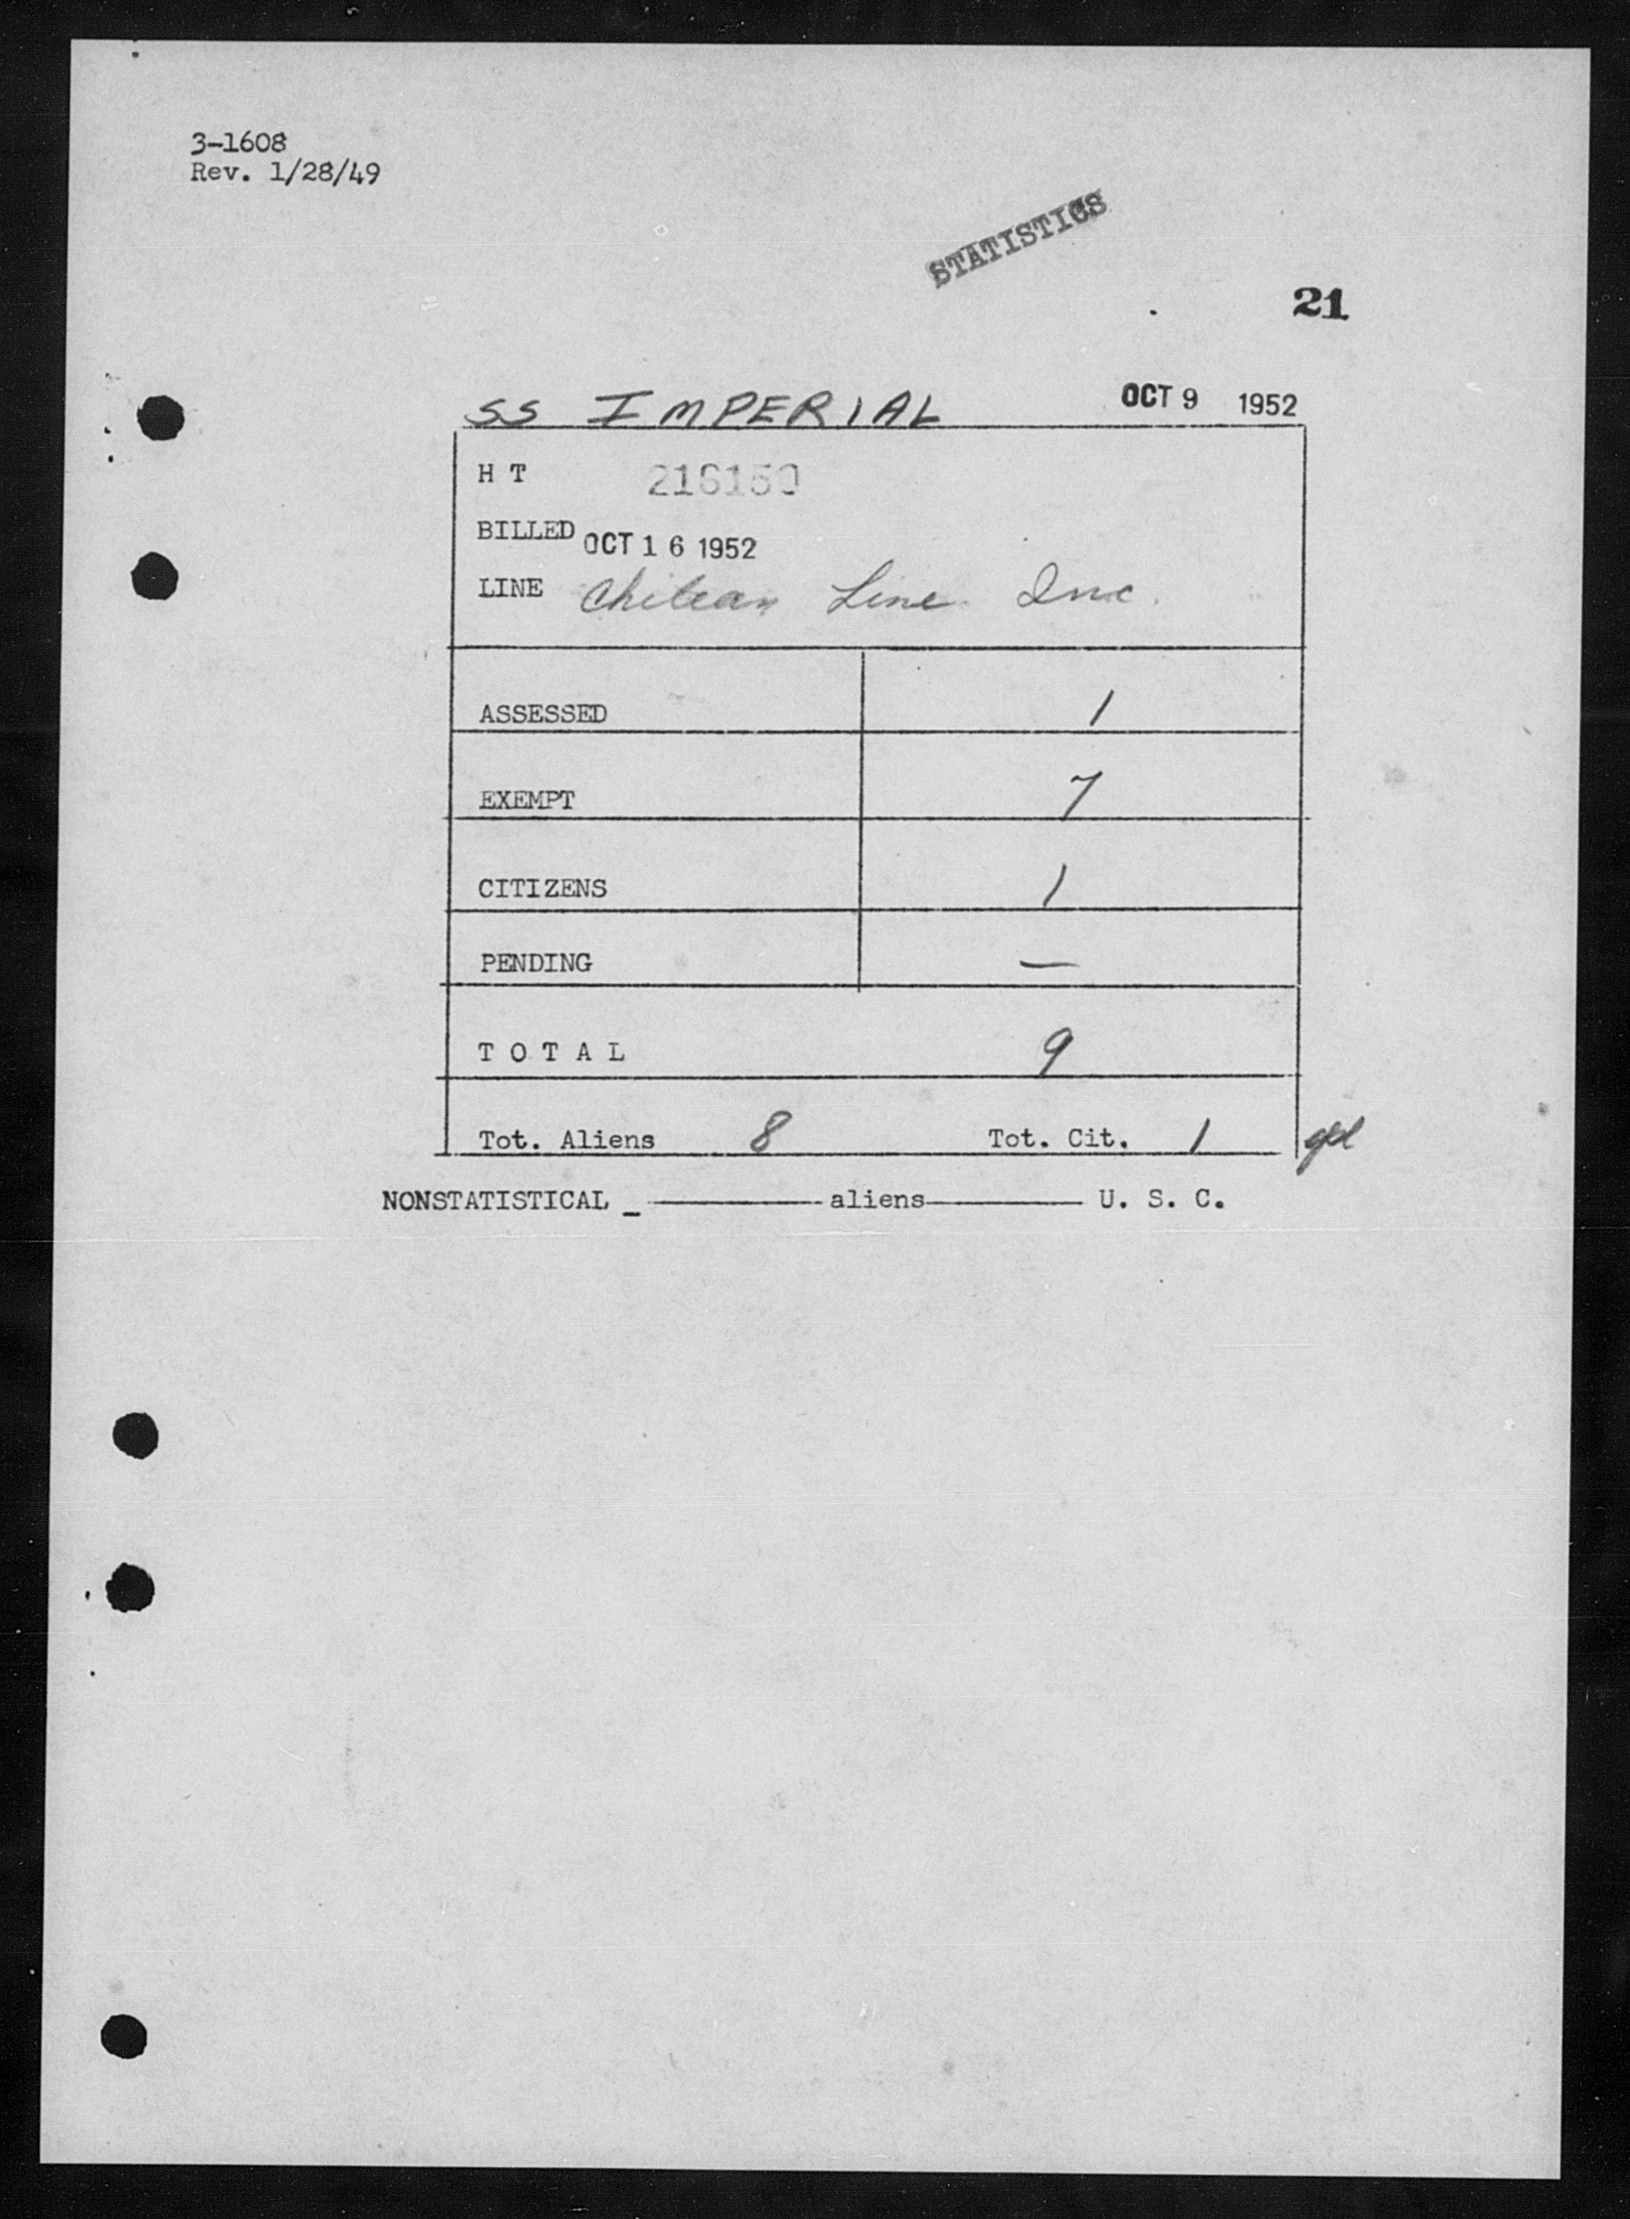 3-1608
Rev. 1/28/49
STATISTICS
21
SS IMPERIAL OCT 9 1952
H T 216150
BILLED OCT 16 1952
LINE Chilean Line Inc.
ASSESSED 1
EXEMPT 7
CITIZENS 1
PENDING —
T O T A L 9
Tot. Aliens 8 Tot. Cit. 1
NONSTATISTICAL _ ———— aliens ———— U. S. C.